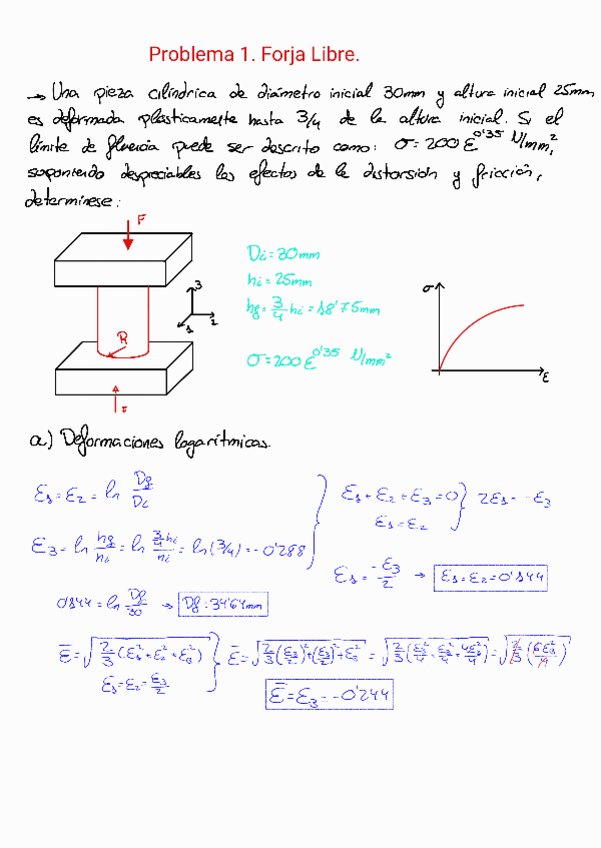 Problema 1. Forja Libre.
→ Una pieza cilíndrica de diámetro inicial 30mm y altura inicial 25mm
es deformada plásticamente hasta 3/4 de la altura inicial. Si el
límite de fluencia puede ser descrito como: σ = 200 ε^0'35 N/mm²,
suponiendo despreciables los efectos de la distorsión y fricción,
determínese:
F
Di = 30mm
hi = 25mm
hf = 3/4 hi = 18'75mm
σ = 200 ε^0'35 N/mm²
3
1
2
R
F
σ
ε
a) Deformaciones logarítmicas.
ε1 = ε2 = ln Df/Di
ε3 = ln hf/hi = ln (3/4 hi)/hi = ln(3/4) = -0'288
ε1 + ε2 + ε3 = 0
ε1 = ε2
2ε1 = -ε3
ε1 = -ε3/2 → ε1 = ε2 = 0'144
0'144 = ln Df/30 → Df = 34'64mm
ε̄ = √(2/3 (ε1² + ε2² + ε3²))
ε1 = ε2 = ε3/2
ε̄ = √(2/3 (ε3/2)² + (ε3/2)² + ε3²) = √(2/3 (ε3²/4 + ε3²/4 + 4ε3²/4)) = √(2/3 (6ε3²/4))
ε̄ = ε3 = -0'244